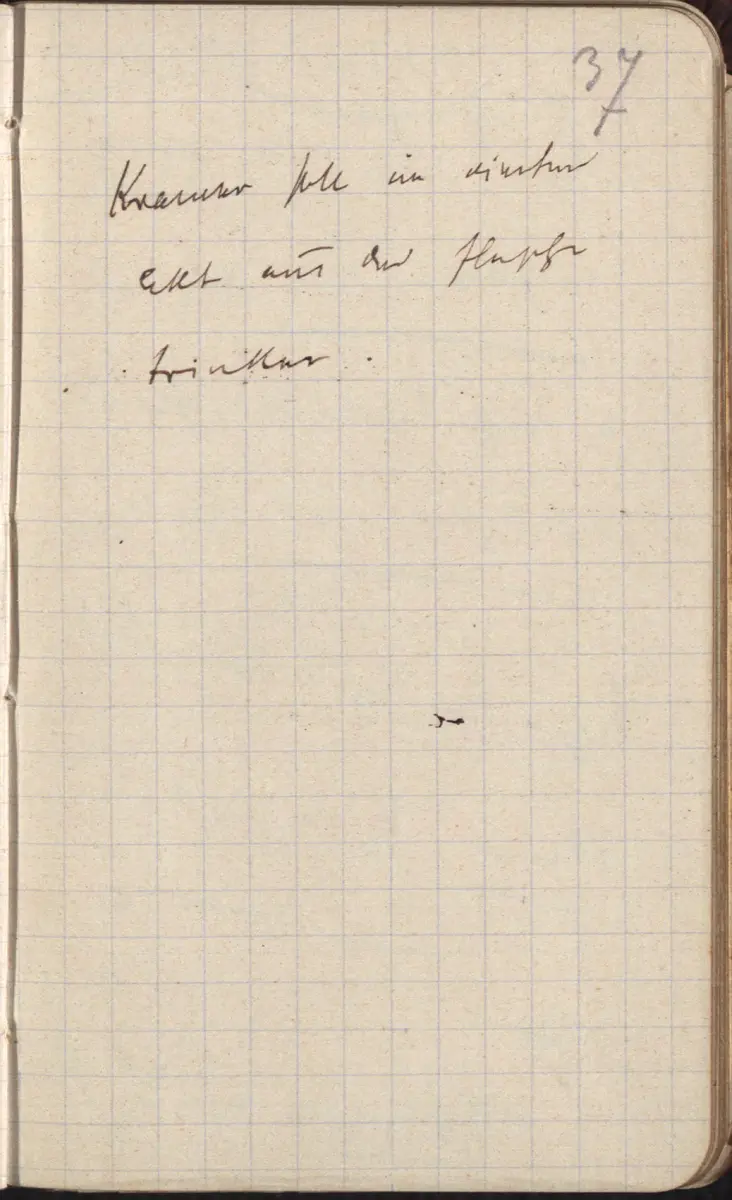 37
Kramer soll im vierten
Akt aus der Flasche
trinken.